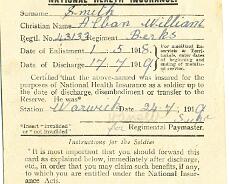 NATIONAL HEALTH INSURANCE.
Surname Smith
Christian Name Alban William
Regtl. No. 43133 Regiment Berks
Date of Enlistment 1. 5. 1918.
Date of Discharge 17. 7. 1919
For enlisted Reservists or Territorials, enter dates of beginning and ending of mobilised service.
Certified that the above-named was insured for the
purposes of National Health Insurance as a soldier up to
the date of discharge, disembodiment or transfer to
the Reserve. He was*
Station Warwick Date 24. 7. 1919
*Insert "invalided"
or "not invalided"
for Regimental Paymaster.
Instructions for the Soldier
"It is most important that you should forward this
card as explained below, immediately after discharge,
etc., in order that you may claim such benefits, if any,
to which you are entitled under the National Insur-
ance Acts.